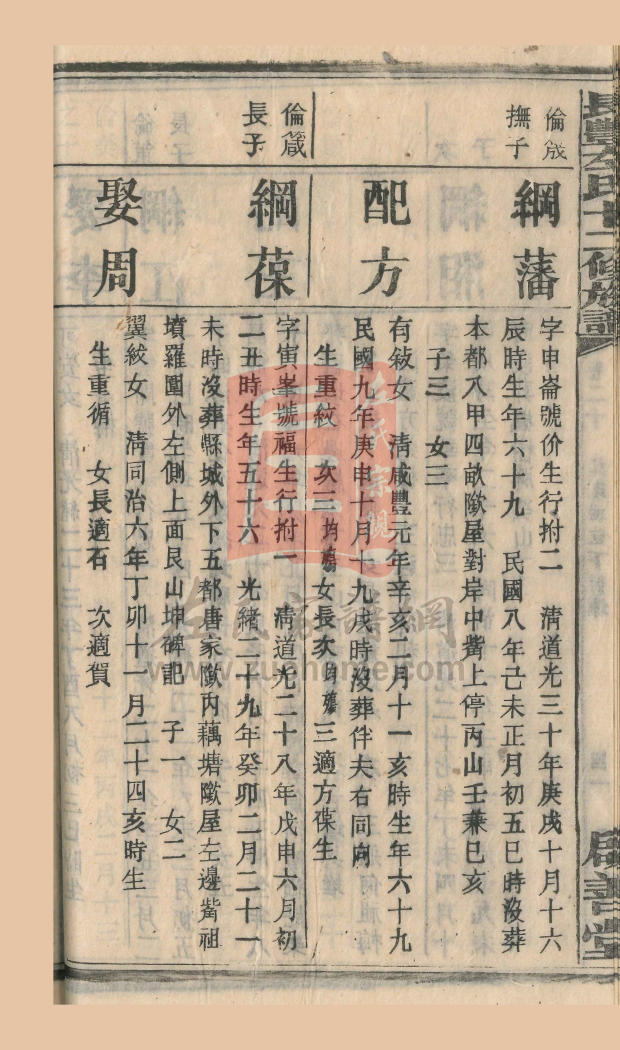 倫箴
撫子
綱藩
字申崙號价生行拊二　清道光三十年庚戌十月十六
辰時生年六十九　民國八年己未正月初五巳時沒葬
本都八甲四畝墩屋對岸中嘴上停丙山壬兼巳亥
子三　女三
配方
有敍女　清咸豐元年辛亥二月十一亥時生年六十九
民國九年庚申十月十九戌時沒葬伴夫右同向
生重紋　次三均殤女長次均殤三適方葆生
倫箴
長子
綱葆
字寅峯號福生行拊一　清道光二十八年戊申六月初
二丑時生年五十六　光緒二十九年癸卯二月二十一
未時沒葬縣城外下五都唐家墩丙藕塘墩屋左邊嘴祖
墳羅圍外左側上面艮山坤碑記　子一　女二
娶周
翼紋女　清同治六年丁卯十一月二十四亥時生
生重循　女長適石　次適賀
氏十二修族譜
善堂
www.zuphome.com